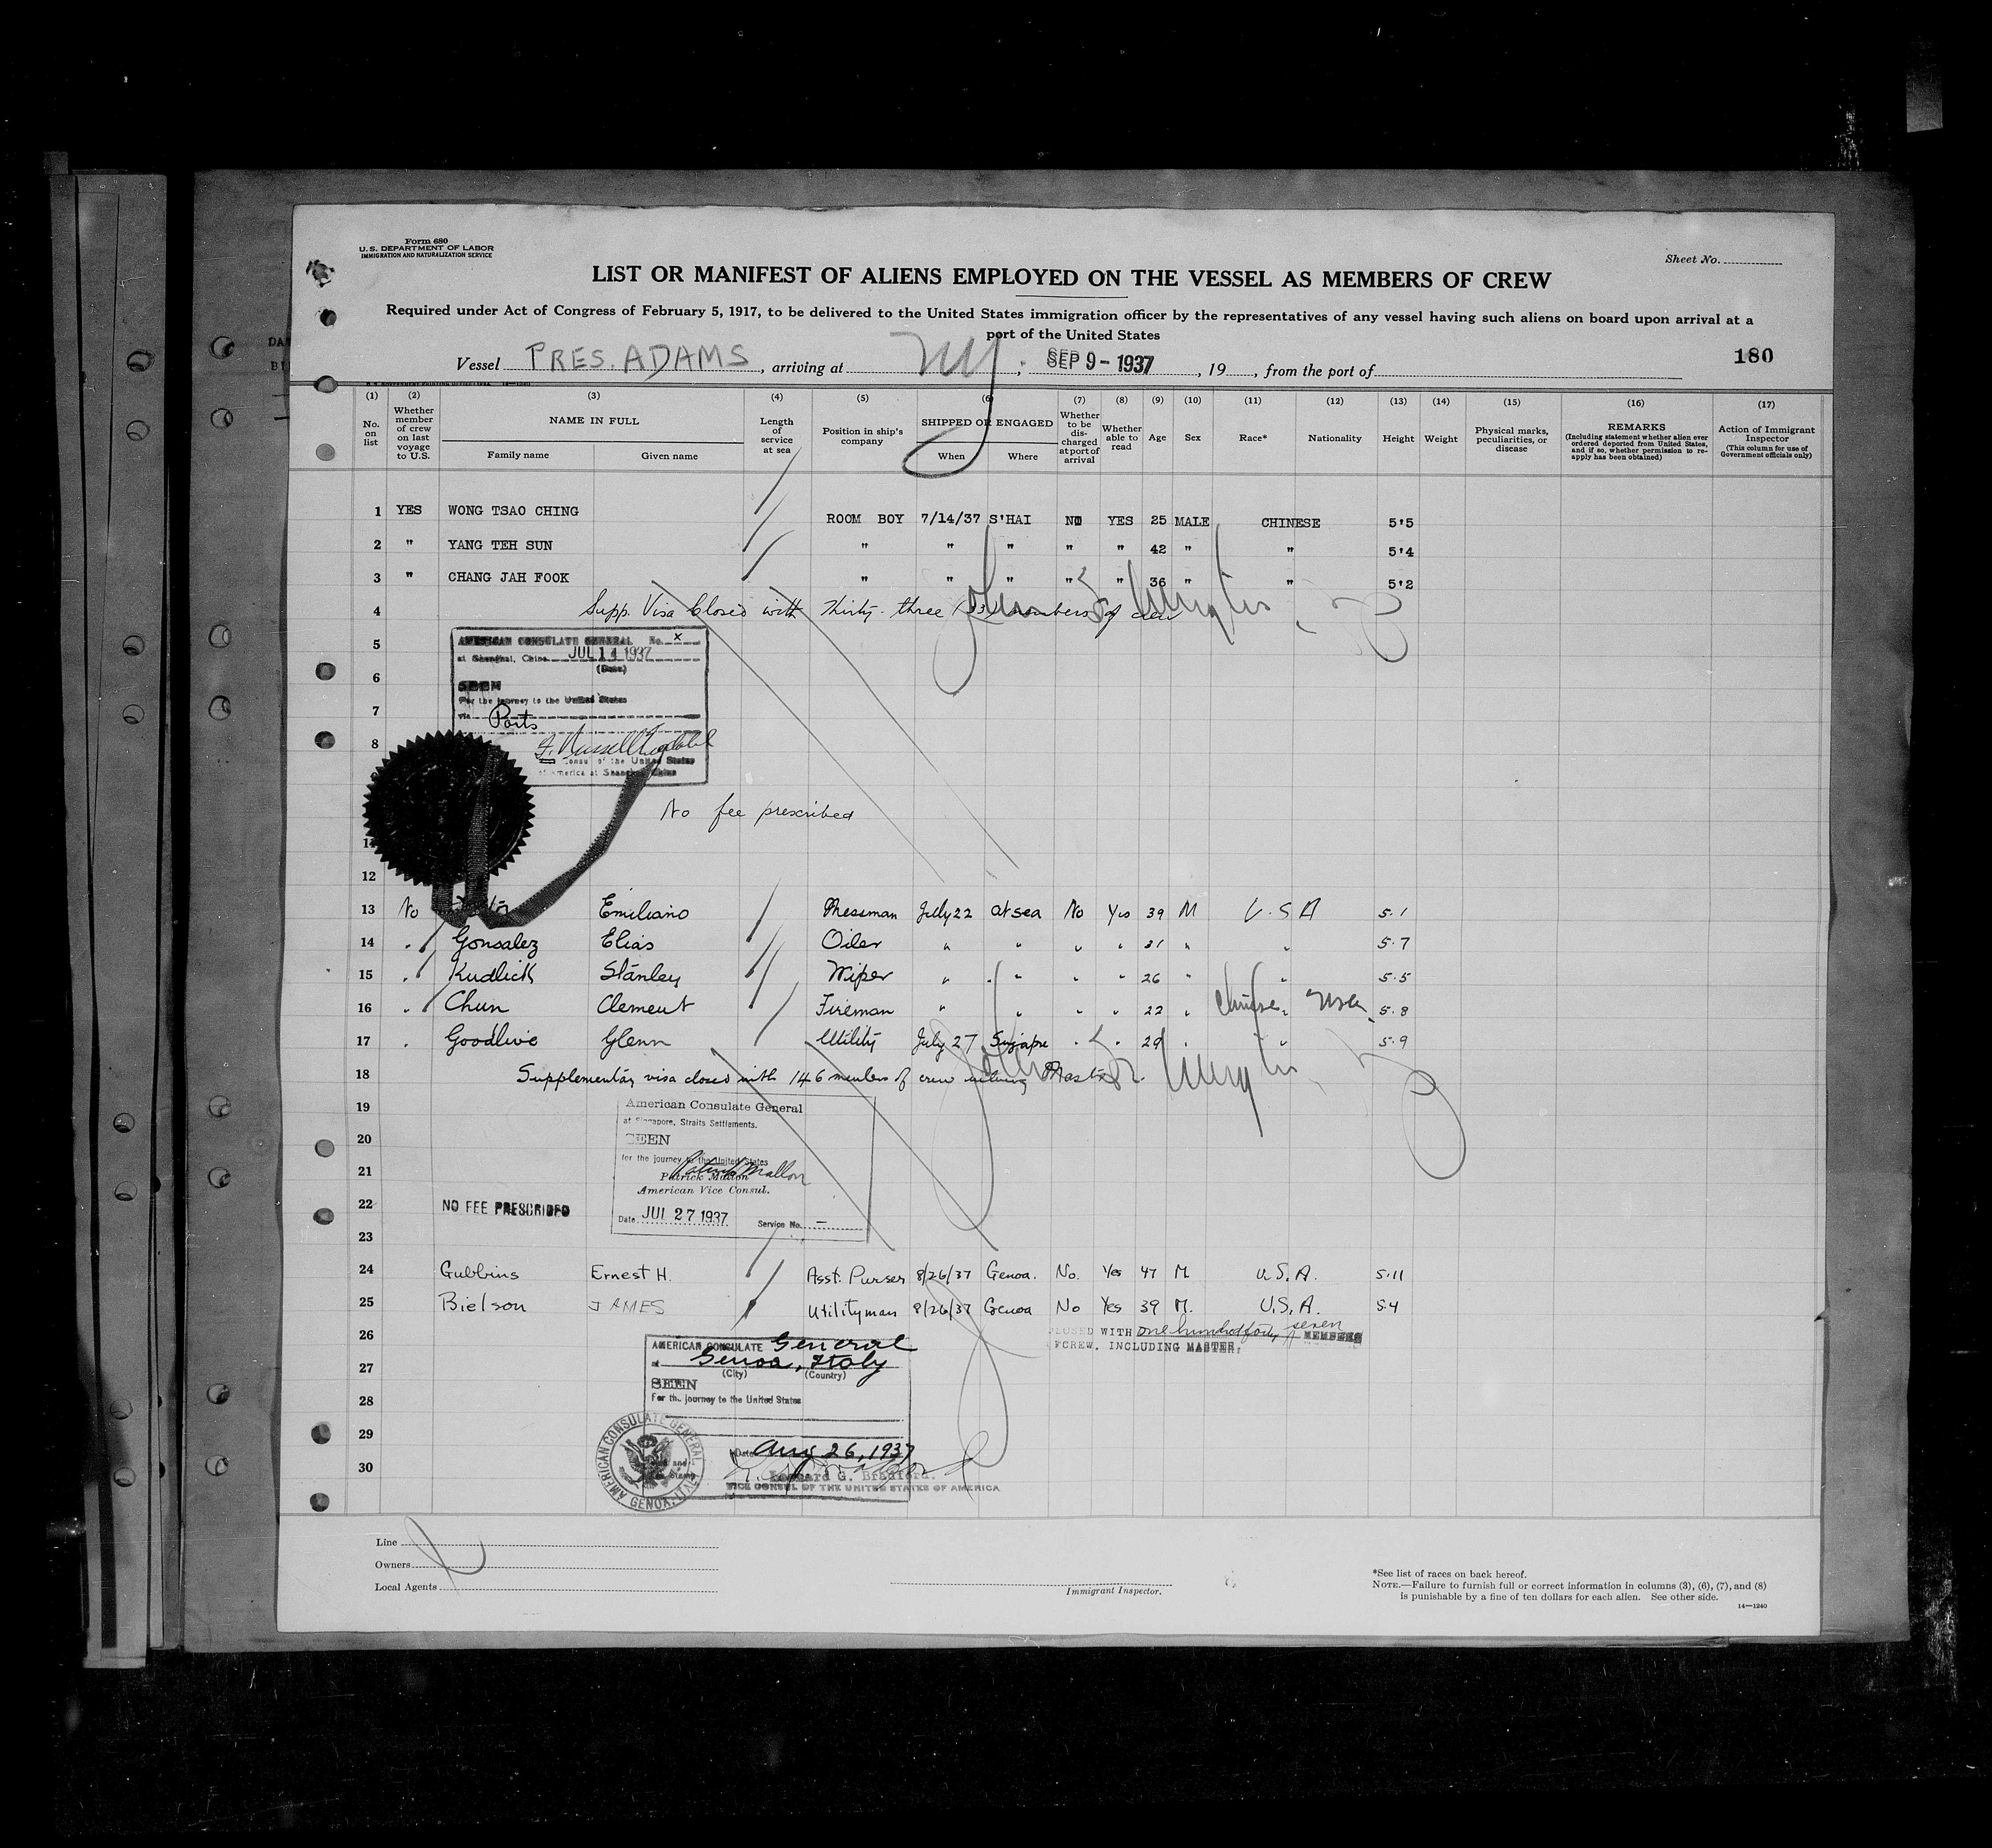 Form 680
U.S. DEPARTMENT OF LABOR
IMMIGRATION AND NATURALIZATION SERVICE
Sheet No.
LIST OR MANIFEST OF ALIENS EMPLOYED ON THE VESSEL AS MEMBERS OF CREW
Required under Act of Congress of February 5, 1917, to be delivered to the United States immigration officer by the representatives of any vessel having such aliens on board upon arrival at a
port of the United States
Vessel PRES. ADAMS, arriving at NY, SEP 9 - 1937, 19, from the port of
180
(1) (2) (3) (4) (5) (6) (7) (8) (9) (10) (11) (12) (13) (14) (15) (16) (17)
No. on list
Whether member of crew on last voyage to U.S.
NAME IN FULL
Family name
Given name
Length of service at sea
Position in ship's company
SHIPPED OR ENGAGED
When
Where
Whether to be discharged at port of arrival
Whether able to read
Age
Sex
Race*
Nationality
Height
Weight
Physical marks, peculiarities, or disease
REMARKS
(Including statement whether alien ever ordered deported from United States, and if so, whether permission to reapply has been obtained)
Action of Immigrant Inspector
(This column for use of Government officials only)
1 YES WONG TSAO CHING ROOM BOY 7/14/37 S'HAI NO YES 25 MALE CHINESE 5'5
2 " YANG TEH SUN " " " " " 42 " " 5'4
3 " CHANG JAH FOOK " " " " " 36 " " 5'2
4 Supp. Visa Closed with Thirty-three (33) members of crew
5 AMERICAN CONSULATE GENERAL No. x
at Shanghai, China JUL 14 1937
(Date)
6 SEEN
For the journey to the United States
7 via Ports
8
Consul of the United States
of America at Shanghai, China
No fee prescribed
12
13 No Emiliano Messman July 22 at sea No Yes 39 M U.S A 5.1
14 " Gonsalez Elias Oiler " " " " 31 " " 5.7
15 " Kudlick Stanley Wiper " " " " 26 " " 5.5
16 " Chun Clement Fireman " " " " 22 " Chinese USA 5.8
17 " Goodlive Glenn Utility July 27 Sigapre " " 29 " " 5.9
18 Supplementary visa closed with 146 members of crew Master.
19 American Consulate General
at Singapore, Straits Settlements.
20 SEEN
for the journey to the United States
21 Patrick Mallon
Patrick Mallon
American Vice Consul.
22 NO FEE PRESCRIBED
Date JUL 27 1937 Service No. —
23
24 Gubbins Ernest H. Asst. Purser 8/26/37 Genoa. No. Yes 47 M. U.S.A. 5.11
25 Bielson JAMES Utilityman 8/26/37 Genoa No Yes 39 M. U.S.A. 5.4
26 CLOSED WITH one hundred forty seven MEMBERS
OF CREW, INCLUDING MASTER.
AMERICAN CONSULATE General
27 at Genoa, Italy
(City) (Country)
SEEN
28 For the journey to the United States
29 Date Aug 26, 1937
30 Leonard G. Bradford.
VICE CONSUL OF THE UNITED STATES OF AMERICA
AMERICAN CONSULATE GENERAL
GENOA, ITALY
Line
Owners
Local Agents
Immigrant Inspector.
*See list of races on back hereof.
NOTE.—Failure to furnish full or correct information in columns (3), (6), (7), and (8)
is punishable by a fine of ten dollars for each alien. See other side.
14—1240